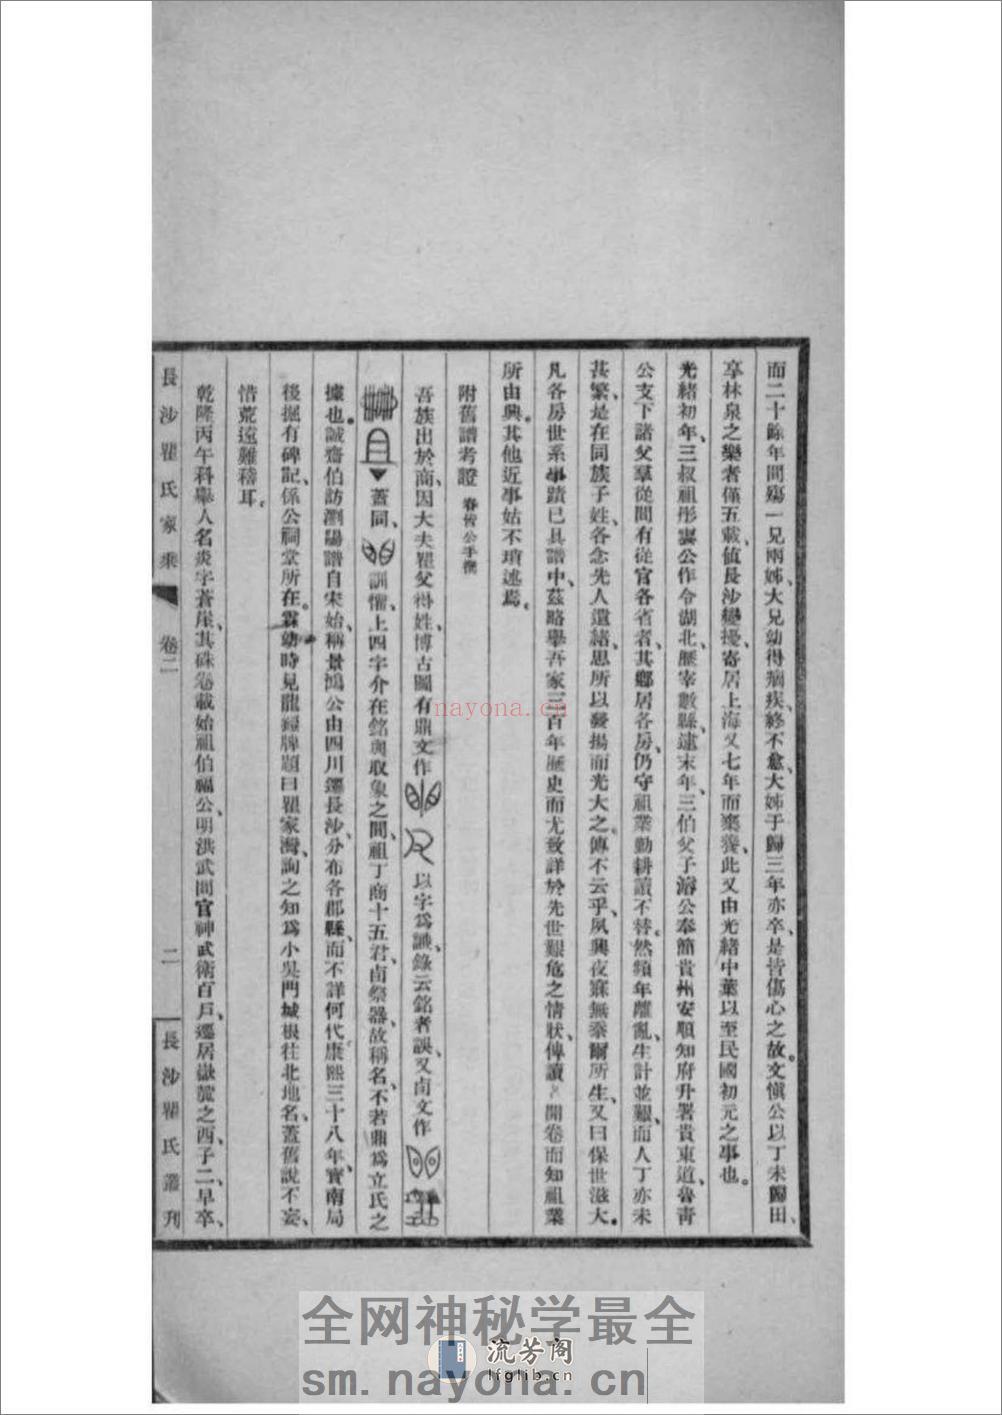 而二十餘年間殤一兄兩姊、大兄幼得痼疾、終不愈、大姊于歸三年亦卒、是皆傷心之故。文愼公以丁未歸田、
享林泉之樂者僅五載、値長沙變擾、寄居上海又七年而棄養、此又由光緖中葉以至民國初元之事也。
光緖初年、三叔祖彤雲公作令湖北、歷宰數縣、逮末年、三伯父子瀞公奉簡貴州安順知府、升署貴東道、魯靑
公支下諸父羣從間有從官各省者、其鄕居各房、仍守祖業、勤耕讀不替。然頻年離亂、生計並艱、而人丁亦未
甚繁、是在同族子姓、各念先人遺緖、思所以發揚而光大之。傳不云乎、夙興夜寐、無忝爾所生、又曰保世滋大。
凡各房世系事蹟已具譜中、茲略舉吾家三百年歷史而尤致詳於先世艱危之情狀、傳讀 開卷而知祖業
所由興。其他近事姑不瑣述焉。
附舊譜考證 春皆公手撰
吾族出於商、因大夫瞿父得姓、博古圖有鼎文作 以字爲讖、錄云銘者誤、又卣文作
蓋同、 訓懼、上四字介在銘與取象之間、祖丁商十五君、卣祭器、故稱名、不若鼎爲立氏之
據也。誠齋伯訪瀏陽譜自宋始、稱景鴻公由四川遷長沙、分布各郡縣、而不詳何代、康熙三十八年、寶南局
後掘有碑記、係公祠堂所在。霖幼時見龍燈牌題曰瞿家灣、詢之知爲小吳門城根往北地名、蓋舊說不妄、
惜荒遠難稽耳。
乾隆丙午科舉人名炎字蒼崖、其硃卷載始祖伯福公、明洪武間官神武衛百戶、遷居嶽麓之西、子二、早卒、
長沙瞿氏家乘 卷二 二 長沙瞿氏叢刊
nayona.cn
全网神秘学最全
流芳阁
lfglib.cn
sm.nayona.cn